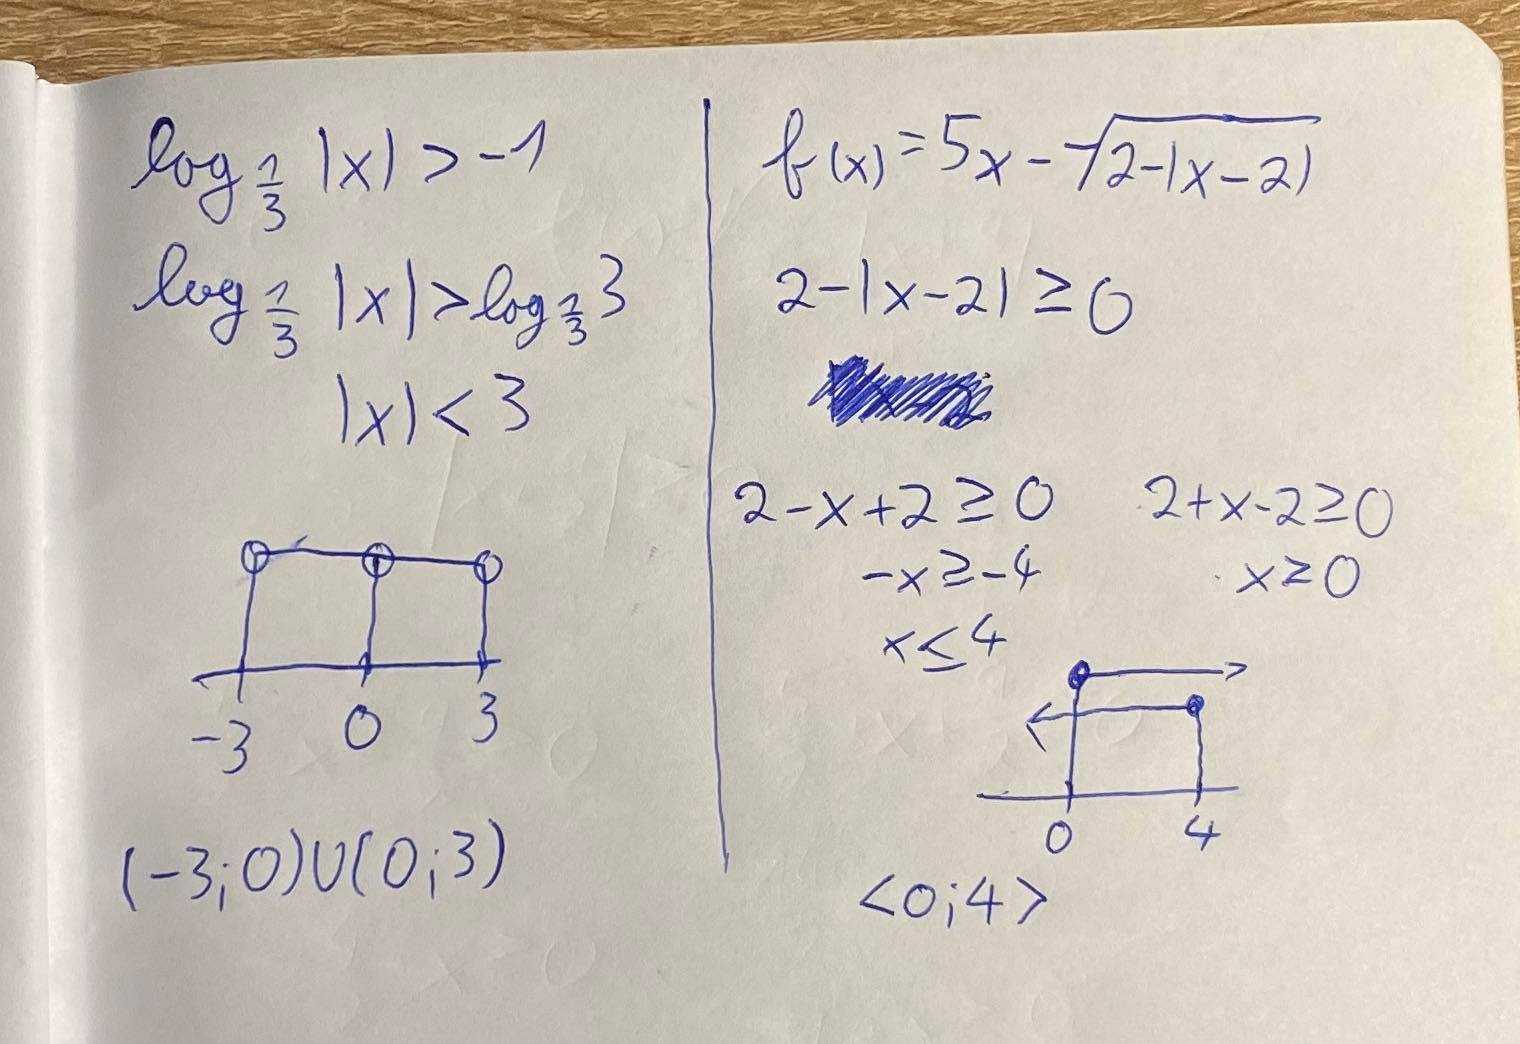 log_{1/3} |x| > -1
log_{1/3} |x| > log_{1/3} 3
|x| < 3
-3 0 3
(-3;0)∪(0;3)
f(x) = 5x - √(2-|x-2|)
2-|x-2| ≥ 0
2-x+2 ≥ 0 2+x-2 ≥ 0
-x ≥ -4 x ≥ 0
x ≤ 4
0 4
<0;4>